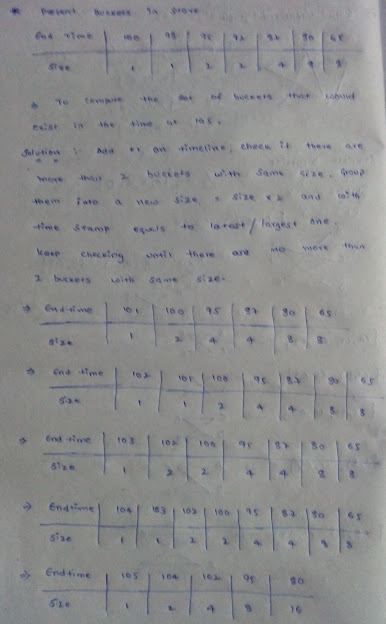 * Present Buckets in store
End Time | 100 | 98 | 95 | 92 | 87 | 80 | 65
Size | 1 | 1 | 2 | 2 | 4 | 8 | 8
To compute the set of buckets that would
exist in the time at 105.
Solution :- Add +1 on timeline, check if there are
more than 2 buckets with same size. Group
them into a new size = size * 2 and with
time stamp equals to latest/largest one.
Keep checking until there are no more than
2 buckets with same size.
⇒ End time | 101 | 100 | 95 | 87 | 80 | 65
Size | 1 | 2 | 4 | 4 | 8 | 8
⇒ End time | 102 | 101 | 100 | 95 | 87 | 80 | 65
Size | 1 | 1 | 2 | 4 | 4 | 8 | 8
⇒ End time | 103 | 102 | 100 | 95 | 87 | 80 | 65
Size | 1 | 2 | 2 | 4 | 4 | 8 | 8
⇒ End time | 104 | 103 | 102 | 100 | 95 | 87 | 80 | 65
Size | 1 | 1 | 2 | 2 | 4 | 4 | 8 | 8
⇒ End time | 105 | 104 | 102 | 95 | 80
Size | 1 | 2 | 4 | 8 | 16